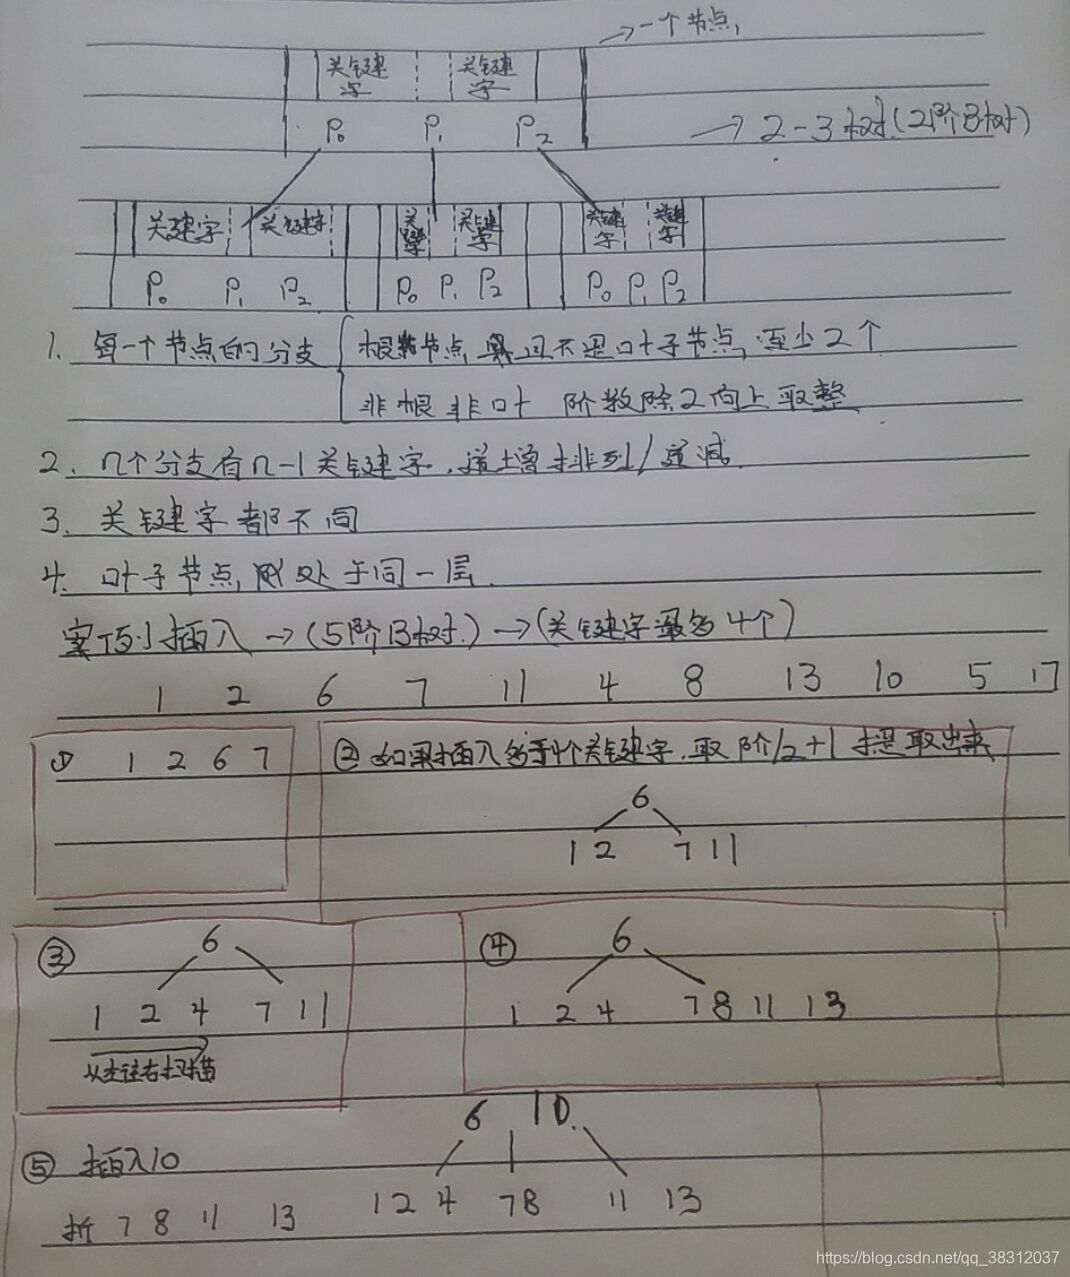 →一个节点
关键字 关键字
P₀ P₁ P₂
→2-3树(2阶B树)
关键字 关键字 关键字 关键字 关键字 关键字
P₀ P₁ P₂ P₀ P₁ P₂ P₀ P₁ P₂
1. 每一个节点的分支 根节点,且不是叶子节点,至少2个
非根非叶 阶数除2向上取整
2. n个分支有n-1关键字,递增排列/递减
3. 关键字都不同
4. 叶子节点,处于同一层.
案例插入→(5阶B树.)→(关键字最多4个)
1 2 6 7 11 4 8 13 10 5 17
① 1 2 6 7
② 如果插入多于4个关键字.取阶/2+1提取出来
6
1 2 7 11
③ 6
1 2 4 7 11
从左往右扫描
④ 6
1 2 4 7 8 11 13
6 10.
⑤ 插入10
1 2 4 7 8 11 13
折 7 8 11 13
https://blog.csdn.net/qq_38312037